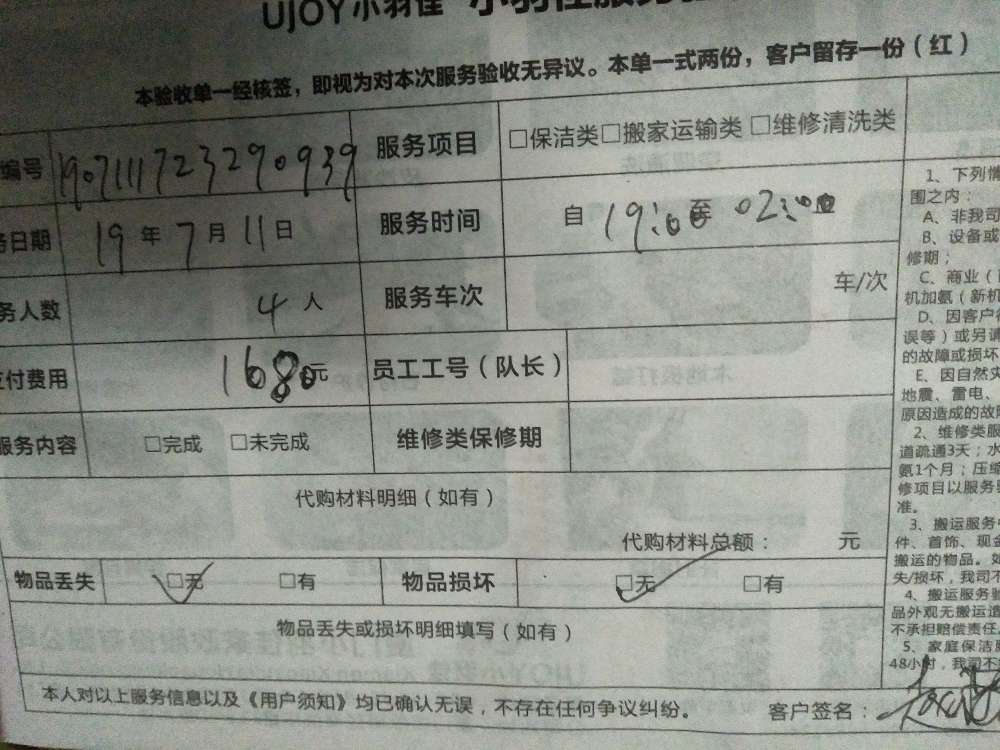 UJOY小羽佳
本验收单一经核签，即视为对本次服务验收无异议。本单一式两份，客户留存一份（红）
编号 190711172329 0939 服务项目 □保洁类□搬家运输类 □维修清洗类
务日期 19年7月11日 服务时间 自 19:00至 02:00
务人数 4人 服务车次 车/次
支付费用 1680元 员工工号（队长）
服务内容 □完成 □未完成 维修类保修期
代购材料明细（如有）
代购材料总额： 元
物品丢失 □无 □有 物品损坏 □无 □有
物品丢失或损坏明细填写（如有）
本人对以上服务信息以及《用户须知》均已确认无误，不存在任何争议纠纷。 客户签名：
1、下列情
围之内：
A、非我司
B、设备或
修期；
C、商业（
机加氨（新机
D、因客户
误等）或另
的故障或损坏
E、因自然灾
地震、雷电、
原因造成的故
2、维修类服
道疏通3天；水
氨1个月；压缩
修项目以服务
准。
3、搬运服务
件、首饰、现金
搬运的物品。如
失/损坏，我司不
4、搬运服务验
品外观无搬运造
不承担赔偿责任
5、家庭保洁
48小时，我司不